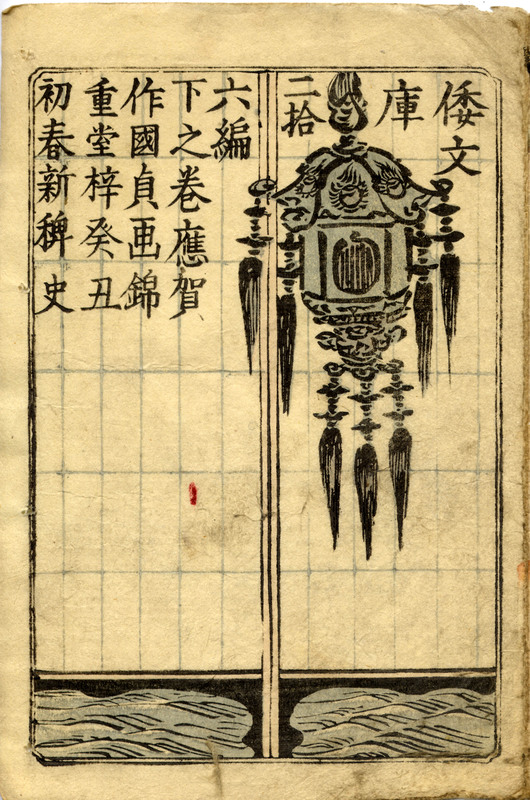 倭文
庫
二拾
六編
下之巻應賀
作國貞画錦
重堂梓癸丑
初春新稗史